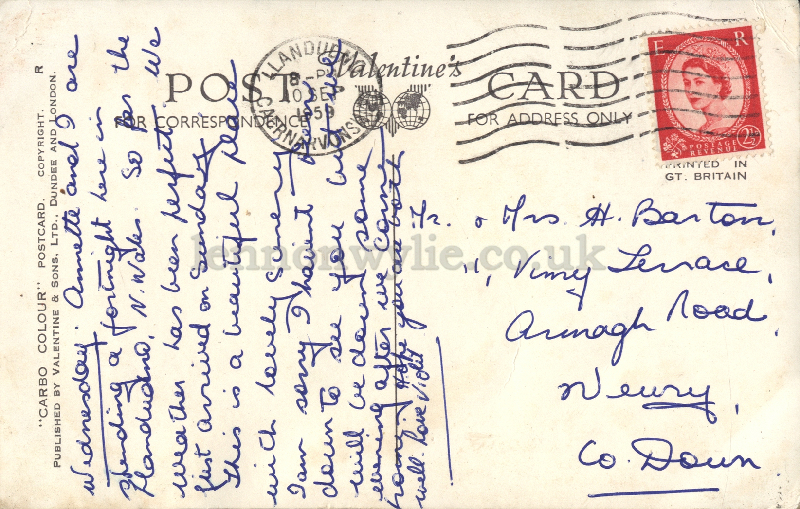 POST CARD
Valentine's
FOR CORRESPONDENCE
FOR ADDRESS ONLY
LLANDUDNO
8-PM
10
1959
CAERNARVONSH
E R
POSTAGE
REVENUE
2½
PRINTED IN
GT. BRITAIN
"CARBO COLOUR" POSTCARD. COPYRIGHT. R
PUBLISHED BY VALENTINE & SONS. LTD., DUNDEE AND LONDON.
Wednesday. Annette and I are
spending a fortnight here in
Llandudno, N. Wales. So far the
weather has been perfect. We
just arrived on Sunday.
This is a beautiful place
with lovely scenery
I am sorry I havent been
down to see you but we
will be down some
evening after we come
home. Hope you are both
well. Love Violet
Mr. & Mrs. H. Barton,
11, Vimy Terrace,
Armagh Road,
Newry,
Co. Down
lennonwylie.co.uk